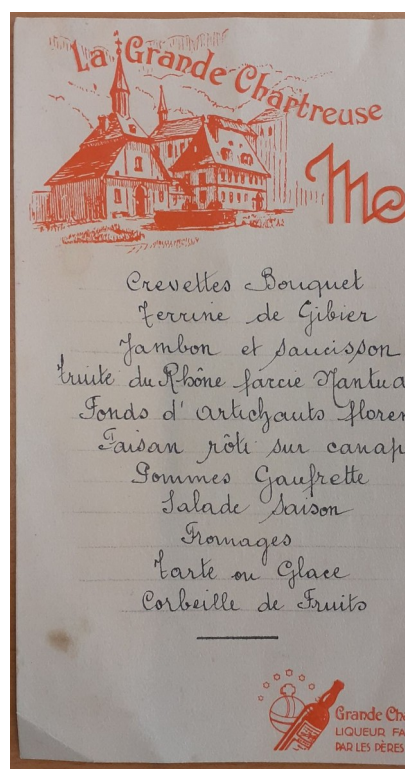 La Grande Chartreuse
Me
Crevettes Bouquet
Terrine de Gibier
Jambon et saucisson
Truite du Rhône farcie Nantua
Fonds d'artichauts floren
Faisan rôti sur canap
Pommes Gaufrette
Salade Saison
Fromages
Tarte ou Glace
Corbeille de Fruits
Grande Cha
LIQUEUR FA
PAR LES PÈRES